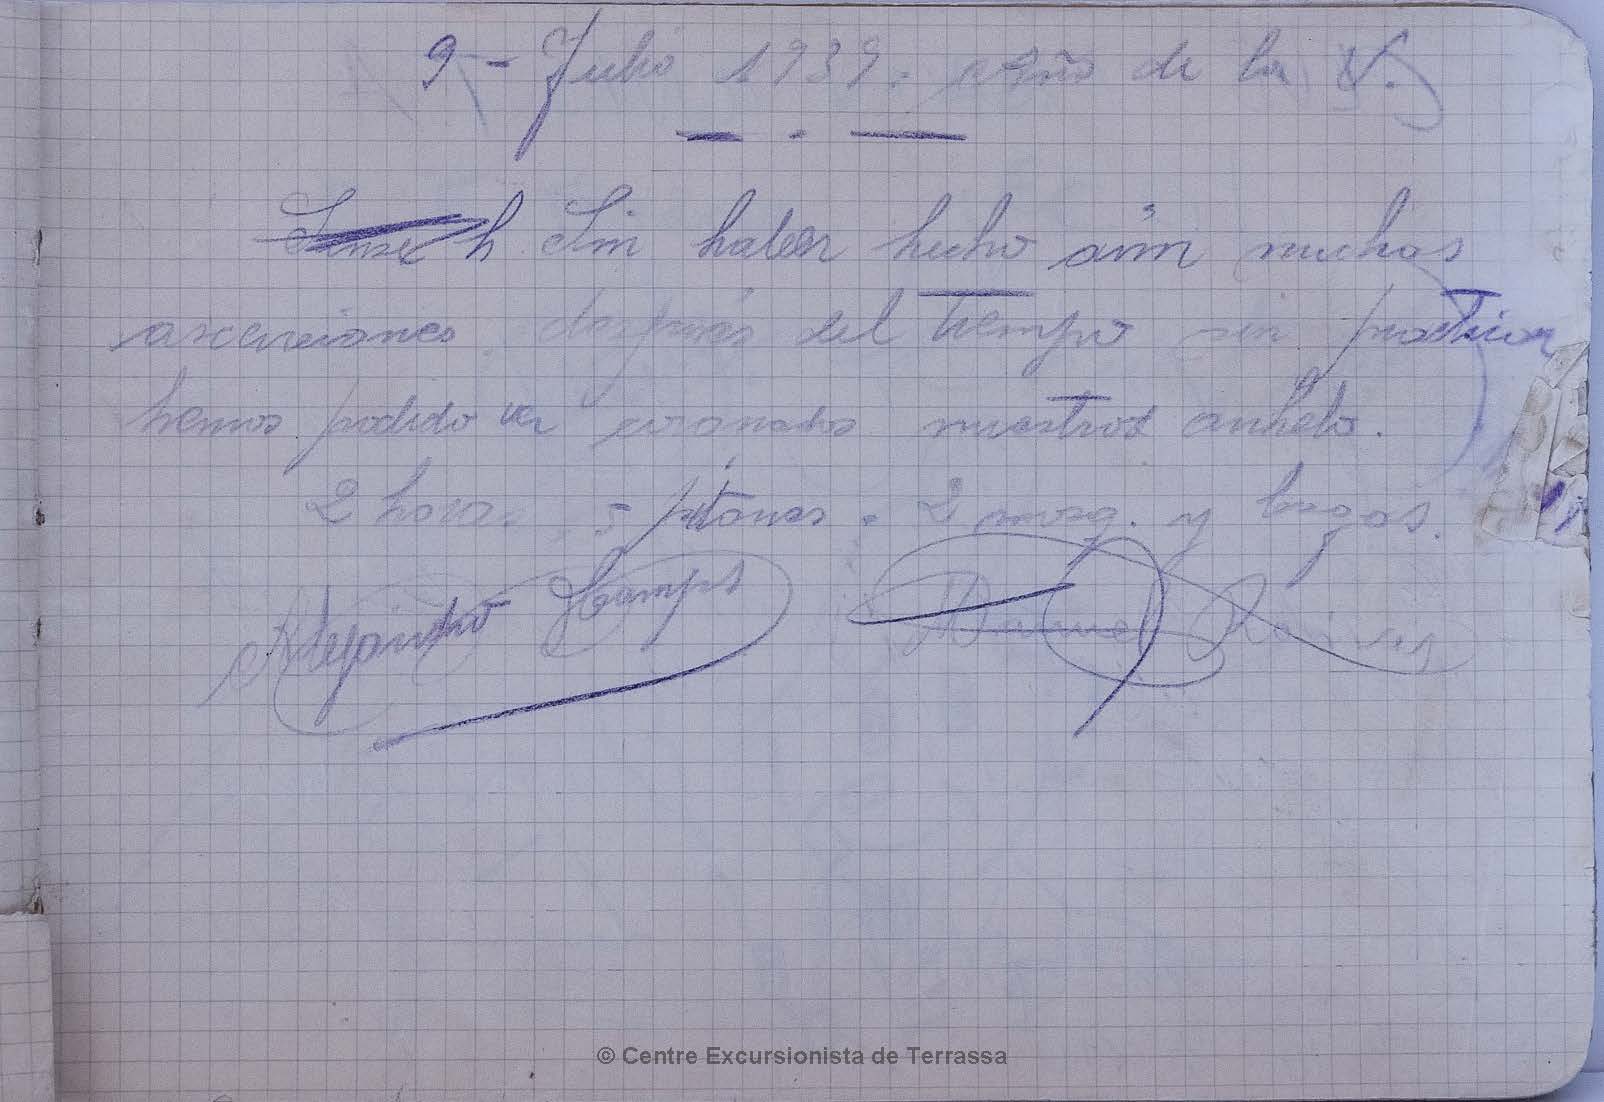 9 - Julio 1939. Año de la V.
h. Sin haber hecho aún muchas
ascensiones después del tiempo sin practicar
hemos podido ver coronados nuestros anhelo.
2 horas, 5 pitonas. 2 mosq. y bagas.
Alejandro Camps Manuel
© Centre Excursionista de Terrassa